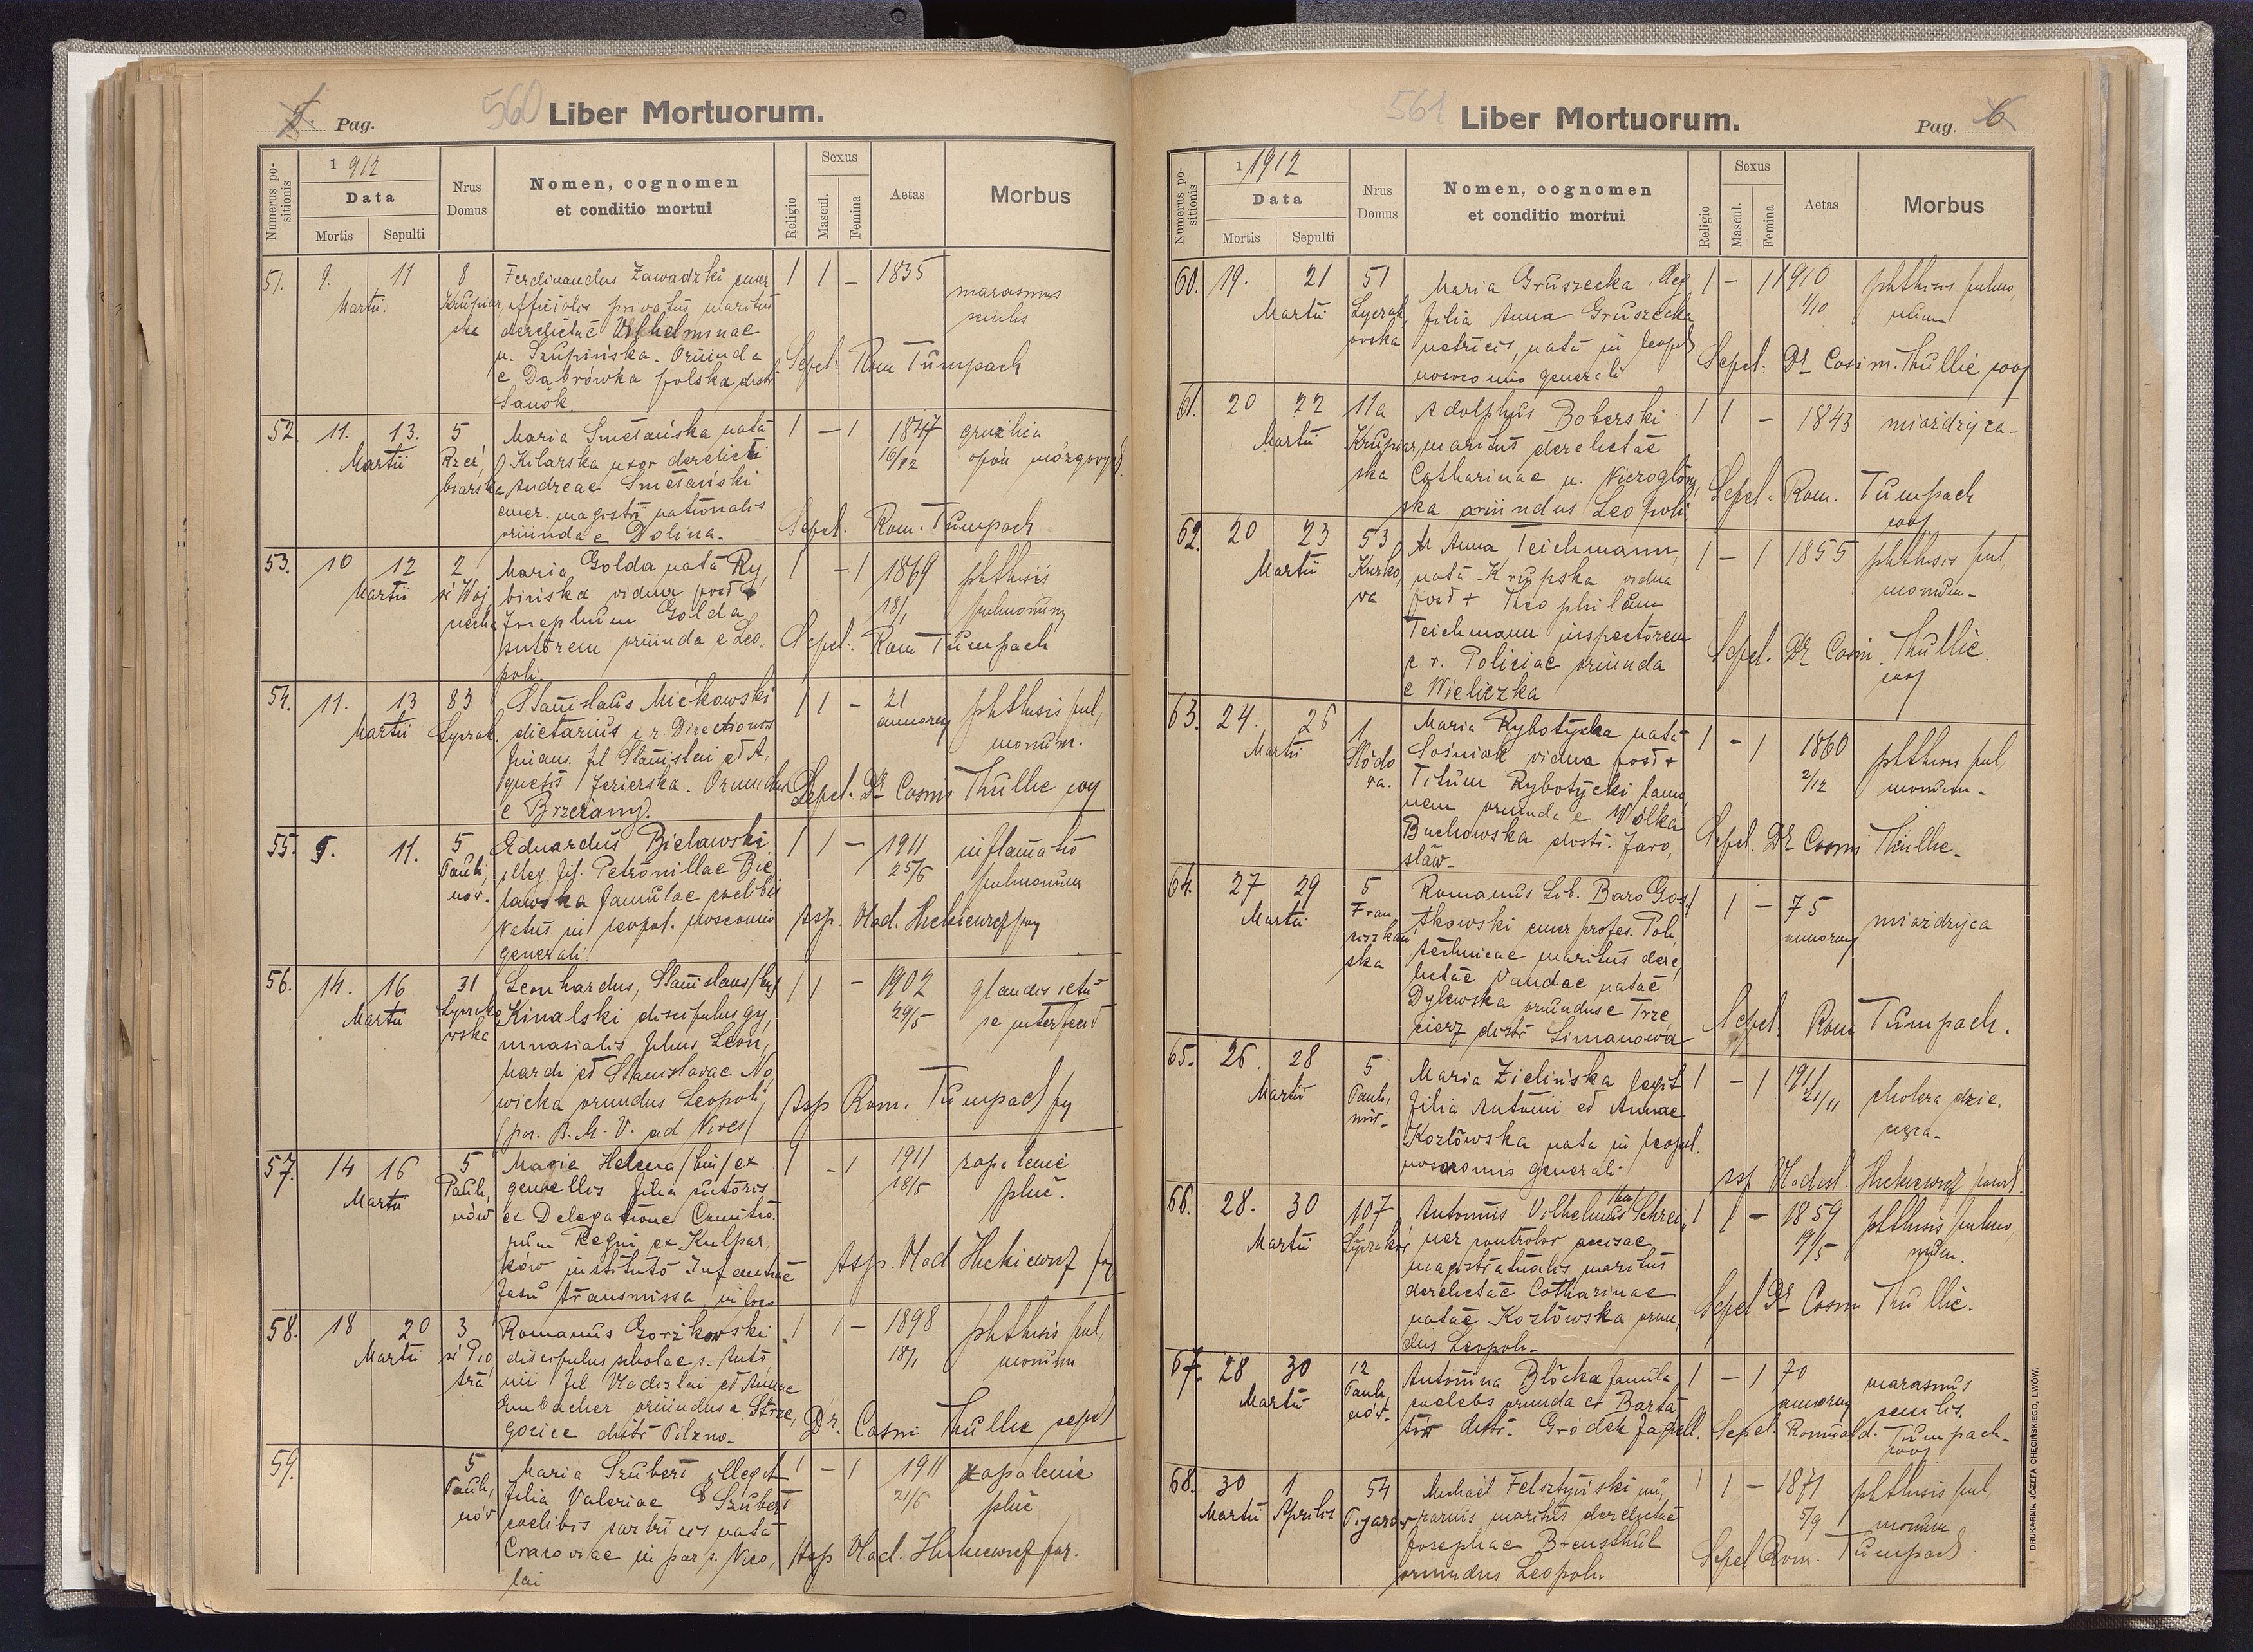 Pag.
560 Liber Mortuorum.
Numerus positionis
1912
Data
Mortis Sepulti
Nrus Domus
Nomen, cognomen
et conditio mortui
Religio
Sexus
Mascul. Femina
Aetas
Morbus
51. 9. 11 8 Ferdinandus Zawadzki emer 1 1 – 1835 marasmus
Martii. officialis privatus maritus senilis
derelictae Vilhelminae
n. Szupińska. Oriunda Sepel. Rom Tumpach
e Dąbrówka polska distr
Sanok.
52. 11. 13. 5 Maria Smetańska nata 1 – 1 1847
Martii Kilarska uxor derelicti 16/12
Andreae Smetański
emer. magistri nationalis
oriunda e Dolina. Sepel. Rom. Tumpach
53. 10 12 2 Maria Golda nata Ry 1 – 1 1869 phthisis
Martii bińska vidua post + 18/1 pulmonum
Josephum Golda
sutorem oriunda e Leo Sepel. Rom Tumpach
poli.
54. 11. 13 83 Stanislaus Mićkowski 1 1 – 21 phthisis pul
Martii Łyczak. dietarius c. r. Directionis annorum monum.
Finans. fil Stanislai et A
gnetis Jezierska. Oriundus Sepel. Dr Casim Thullie
e Brzeżany.
55. 9. 11. 5 Eduardus Bielawski 1 1 – 1911 inflamatio
Pauli illeg. fil. Petronillae Bie 25/6 pulmonum
nów. lawska famulae coelibis
natus in Leopol. nosocomio Asp. Vlad. Hickiewicz
generali.
56. 14. 16 31 Leonhardus, Stanislaus 1 1 – 1902 glandis ictu
Martii Łyczako Kinalski discipulus gy 29/5 se interfecit
wska mnasialis filius Leon
hardi et Stanislavae No
wicka oriundus Leopoli Asp Rom. Tumpach
/par. B. M. V. ad Nives/
57. 14 16 5 Maria Helena /bin/ ex 1 – 1 1911 zapalenie
Martii Pauli gemellis filia sutoris 18/5 płuc.
nów ex Delegatione Comitio
rum Regni ex Kulpar
ków instituto Infantiae Asp. Vlad Hickiewicz
Jesu transmissa in loco
58. 18 20 3 Romanus Gorzkowski 1 1 – 1898 phthisis pul
Martii discipulus scholae s. Anto 18/1 monum
nii fil Vladislai et Annae
oriundus e Strze
gocice distr Pilzno. Dr. Casim Thullie sepel
59. 5 Maria Szubert illegit 1 – 1 1911 zapalenie
Pauli filia Valeriae Szubert 21/6 płuc
nów coelibis sartricis nata
Cracoviae in par s. Nico Asp Vlad. Hickiewicz
lai
561 Liber Mortuorum.
Pag. 6
Numerus positionis
1 1912
Data
Mortis Sepulti
Nrus Domus
Nomen, cognomen
et conditio mortui
Religio
Sexus
Mascul. Femina
Aetas
Morbus
60. 19. 21 51 Maria Gruszecka illeg 1 – 1 1910 phthisis pulmo
Martii Łyczak filia Anna Gruszecka 1/10 num
owska nutricis, nata in Leopol
nosocomio generali Sepel. Dr Casim. Thullie coop
61. 20 22 11a Adolphus Boberski 1 1 – 1843 miażdżyca
Martii Krupiar maritus derelictae
ska Catharinae n. Niezogłow
ska oriundus Leopoli Sepel. Rom. Tumpach
coop
62. 20 23 53 M Anna Teichmann 1 – 1 1855 phthisis pul
Martii Kurko nata Krupska vidua monum
wa post + Theophilum
Teichmann inspectorem Sepel. Dr Casim. Thullie
c. r. Policiae oriunda coop
e Wieliczka
63. 24. 26 1 Maria Rybotycka nata 1 – 1 1860 phthisis pul
Martii Słodo Sośniak vidua post + 2/12 monum
wa. Titum Rybotycki
oriunda e Wólka
Buchowska distr. Jaro Sepel. Dr Casim Thullie.
sław
64. 27 29 5 Romanus Lib. Baro Gos 1 1 – 75 miażdżyca
Martii Fran tkowski emer profes. Poli annorum
ciszkań technicae maritus dere
ska lictae Vandae natae
Dylewska oriundus e Trze
cierz distr Limanowa Sepel. Rom Tumpach.
65. 26 28 5 Maria Zielińska legit 1 – 1 1911 cholera dzie
Martii Pauli filia Antonii et Annae 21/11 cięca
nów Kozłowska nata in Leopol.
nosocomio generali asp Vladisl. Hickiewicz
66. 28. 30 107 Antonius Vilhelmus /bin/ Schrei 1 1 – 1859 phthisis pulmo
Martii Łyczakow ner controlor accisae 19/5 num.
magistratualis maritus
derelictae Catharinae
natae Kozłowska oriun Sepel Dr Casim Thullie.
dus Leopoli.
67. 28 30 12 Antonina Blocka famula 1 – 1 70 marasmus
Martii Pauli coelebs oriunda e Barta annorum senilis.
nów tów distr. Gródek Jagiell. Sepel. Romuald. Tumpach
coop
68. 30 1 54 Michaël Felsztyński mu 1 1 – 1871 phthisis pul
Martii Aprilis Pijarów rarius maritus derelictae 5/9 monum
Josephae
oriundus Leopoli. Sepel Rom. Tumpach
DRUKARNIA JÓZEFA CHĘCIŃSKIEGO, LWÓW.